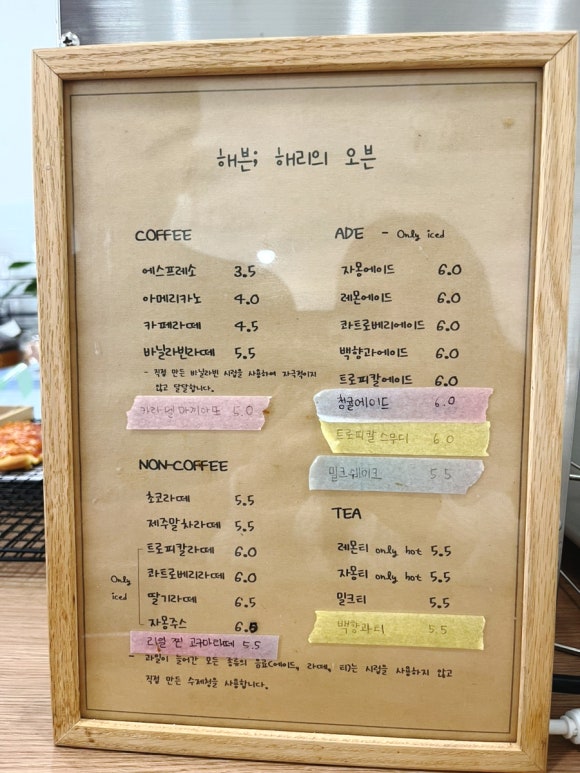 해븐; 해리의 오븐
COFFEE
에스프레소 3.5
아메리카노 4.0
카페라떼 4.5
바닐라빈라떼 5.5
- 직접 만든 바닐라빈 시럽을 사용하여 자극적이지
않고 달달합니다.
카라멜 마끼아또 5.0
NON-COFFEE
초코라떼 5.5
제주말차라떼 5.5
트로피칼라떼 6.0
콰트로베리라떼 6.0
딸기라떼 6.5
자몽주스 6.5
Only
iced
리얼 찐 고구마라떼 5.5
ADE - Only iced
자몽에이드 6.0
레몬에이드 6.0
콰트로베리에이드 6.0
백향과에이드 6.0
트로피칼에이드 6.0
청귤에이드 6.0
트로피칼 스무디 6.0
밀크쉐이크 5.5
TEA
레몬티 only hot 5.5
자몽티 only hot 5.5
밀크티 5.5
백향과티 5.5
- 과일이 들어간 모든 종류의 음료(에이드, 라떼, 티)는 시럽을 사용하지 않고
직접 만든 수제청을 사용합니다.